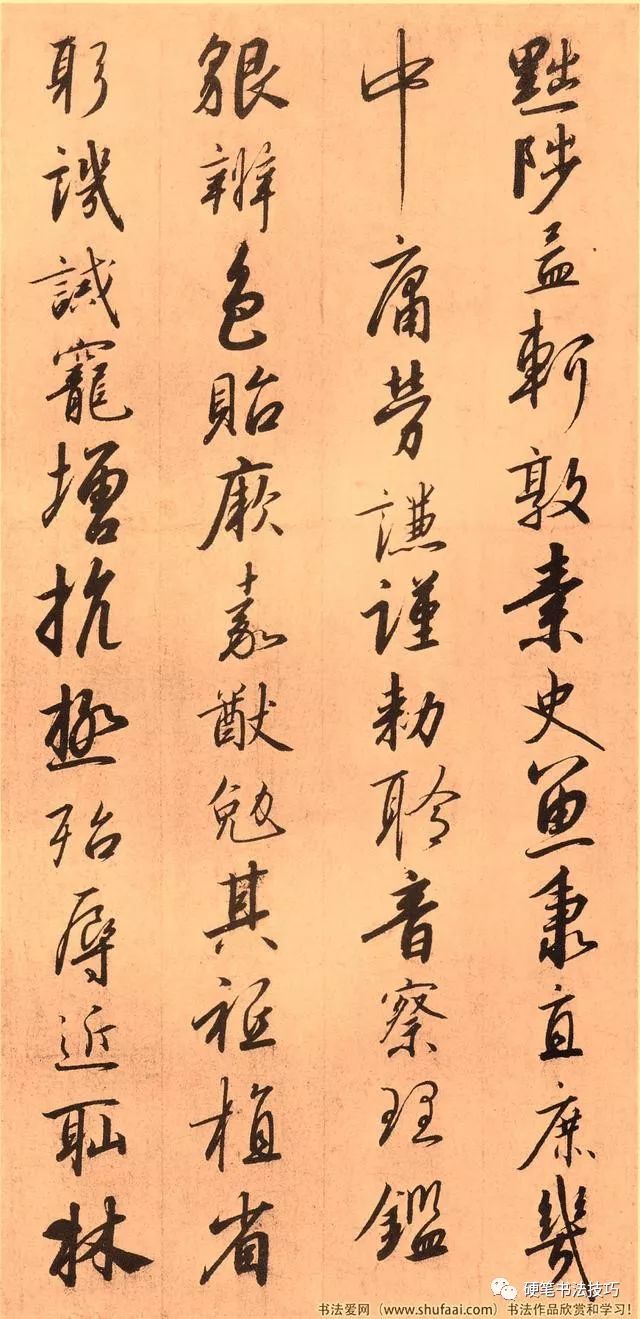 黜陟孟軻敦素史魚秉直庶幾
中庸勞謙謹勅聆音察理鑑
貌辨色貽厥嘉猷勉其祗植省
躬譏誡寵增抗極殆辱近耻林
硬笔书法技巧
书法爱网（www.shufaai.com）书法作品欣赏和学习！